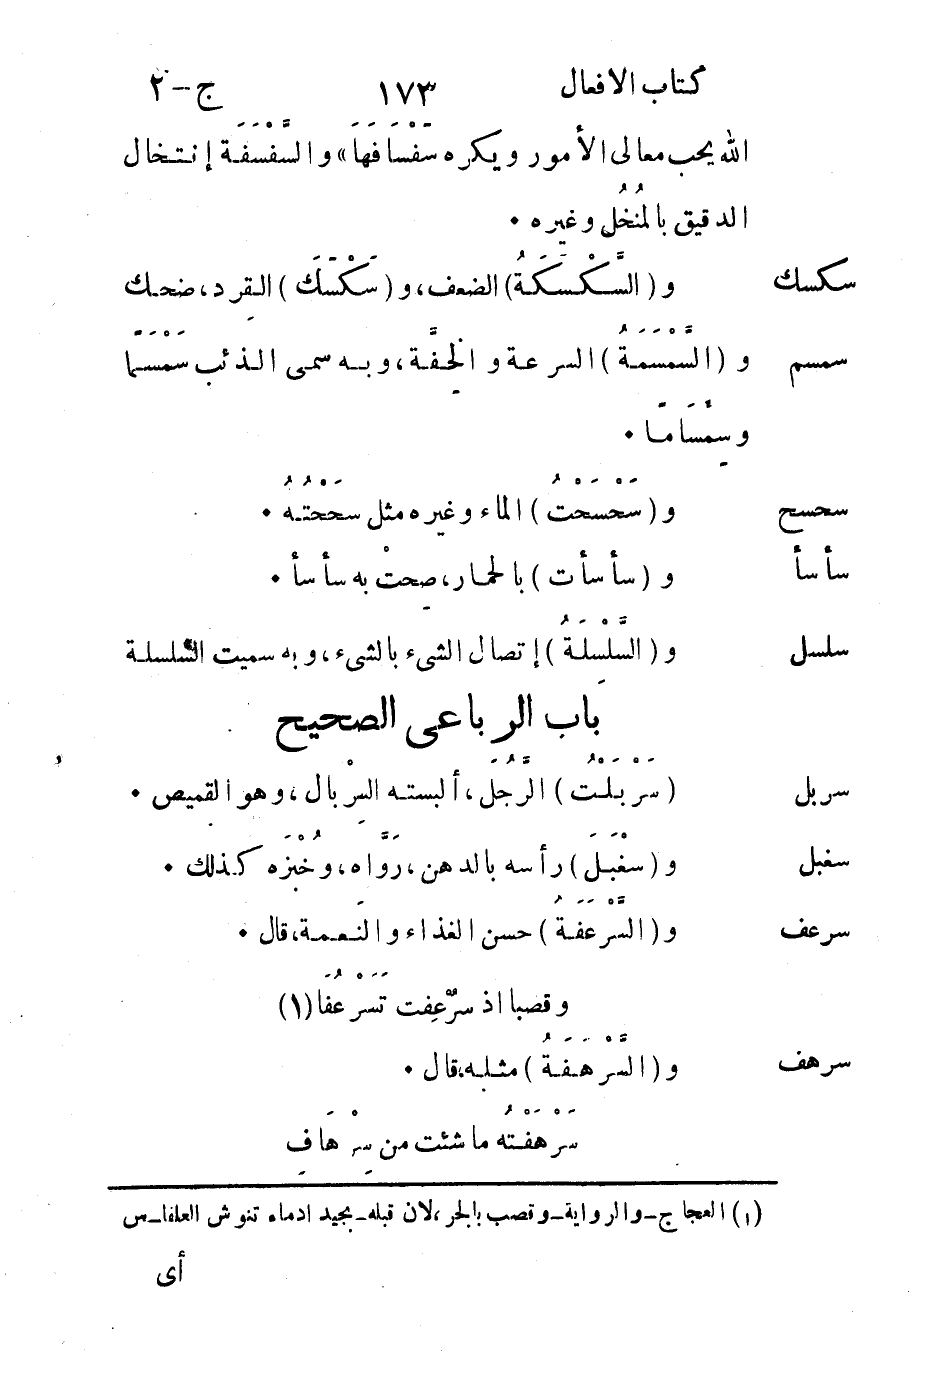 كتاب الافعال ١٧٣ ج-٢
الله يحب معالى الأمور ويكره سَفْسَافَهَا» والسَّفْسَفَة إنتخال
الدقيق بالمُنخُل وغيره •
سكسك و (السَّكْسَكَةُ) الضعف، و (سَكْسَكَ) القرد، ضحك
سمسم و (السَّمْسَمَةُ) السرعة والخِفَّة، وبه سمى الذئب سَمْسَمًا
وسِمْسَامًا •
سحسح و (سَحْسَحْتُ) الماء وغيره مثل سححتُهُ •
سأسأ و (سأسأت) بالحمار، صِحتْ به سأسأ •
سلسل و (السَّلْسِلَةُ) إتصال الشىء بالشىء، وبه سميت السلسلة
باب الرباعى الصحيح
سربل (سَرْبَلْتُ) الرَّجُلَ، ألبسته السِرْبال، وهو القميص •
سغبل و (سَغْبَلَ) رأسه بالدهن، رَوَّاه، وخُبْزَه كذلك •
سرعف و (السَّرْعَفَةُ) حسن الغذاء والنَعمة، قال •
وقصبا اذ سُرْعِفت تَسَرْعُفَا (١)
سرهف و (السَّرْهَفَةُ) مثله، قال •
سَرْهَفْتُه ما شئت من سِرْهَافِ
(١) العجاج-والرواية-وقصب بالجر، لان قبله-بجيد ادماء تنوش العلفا-س
أى